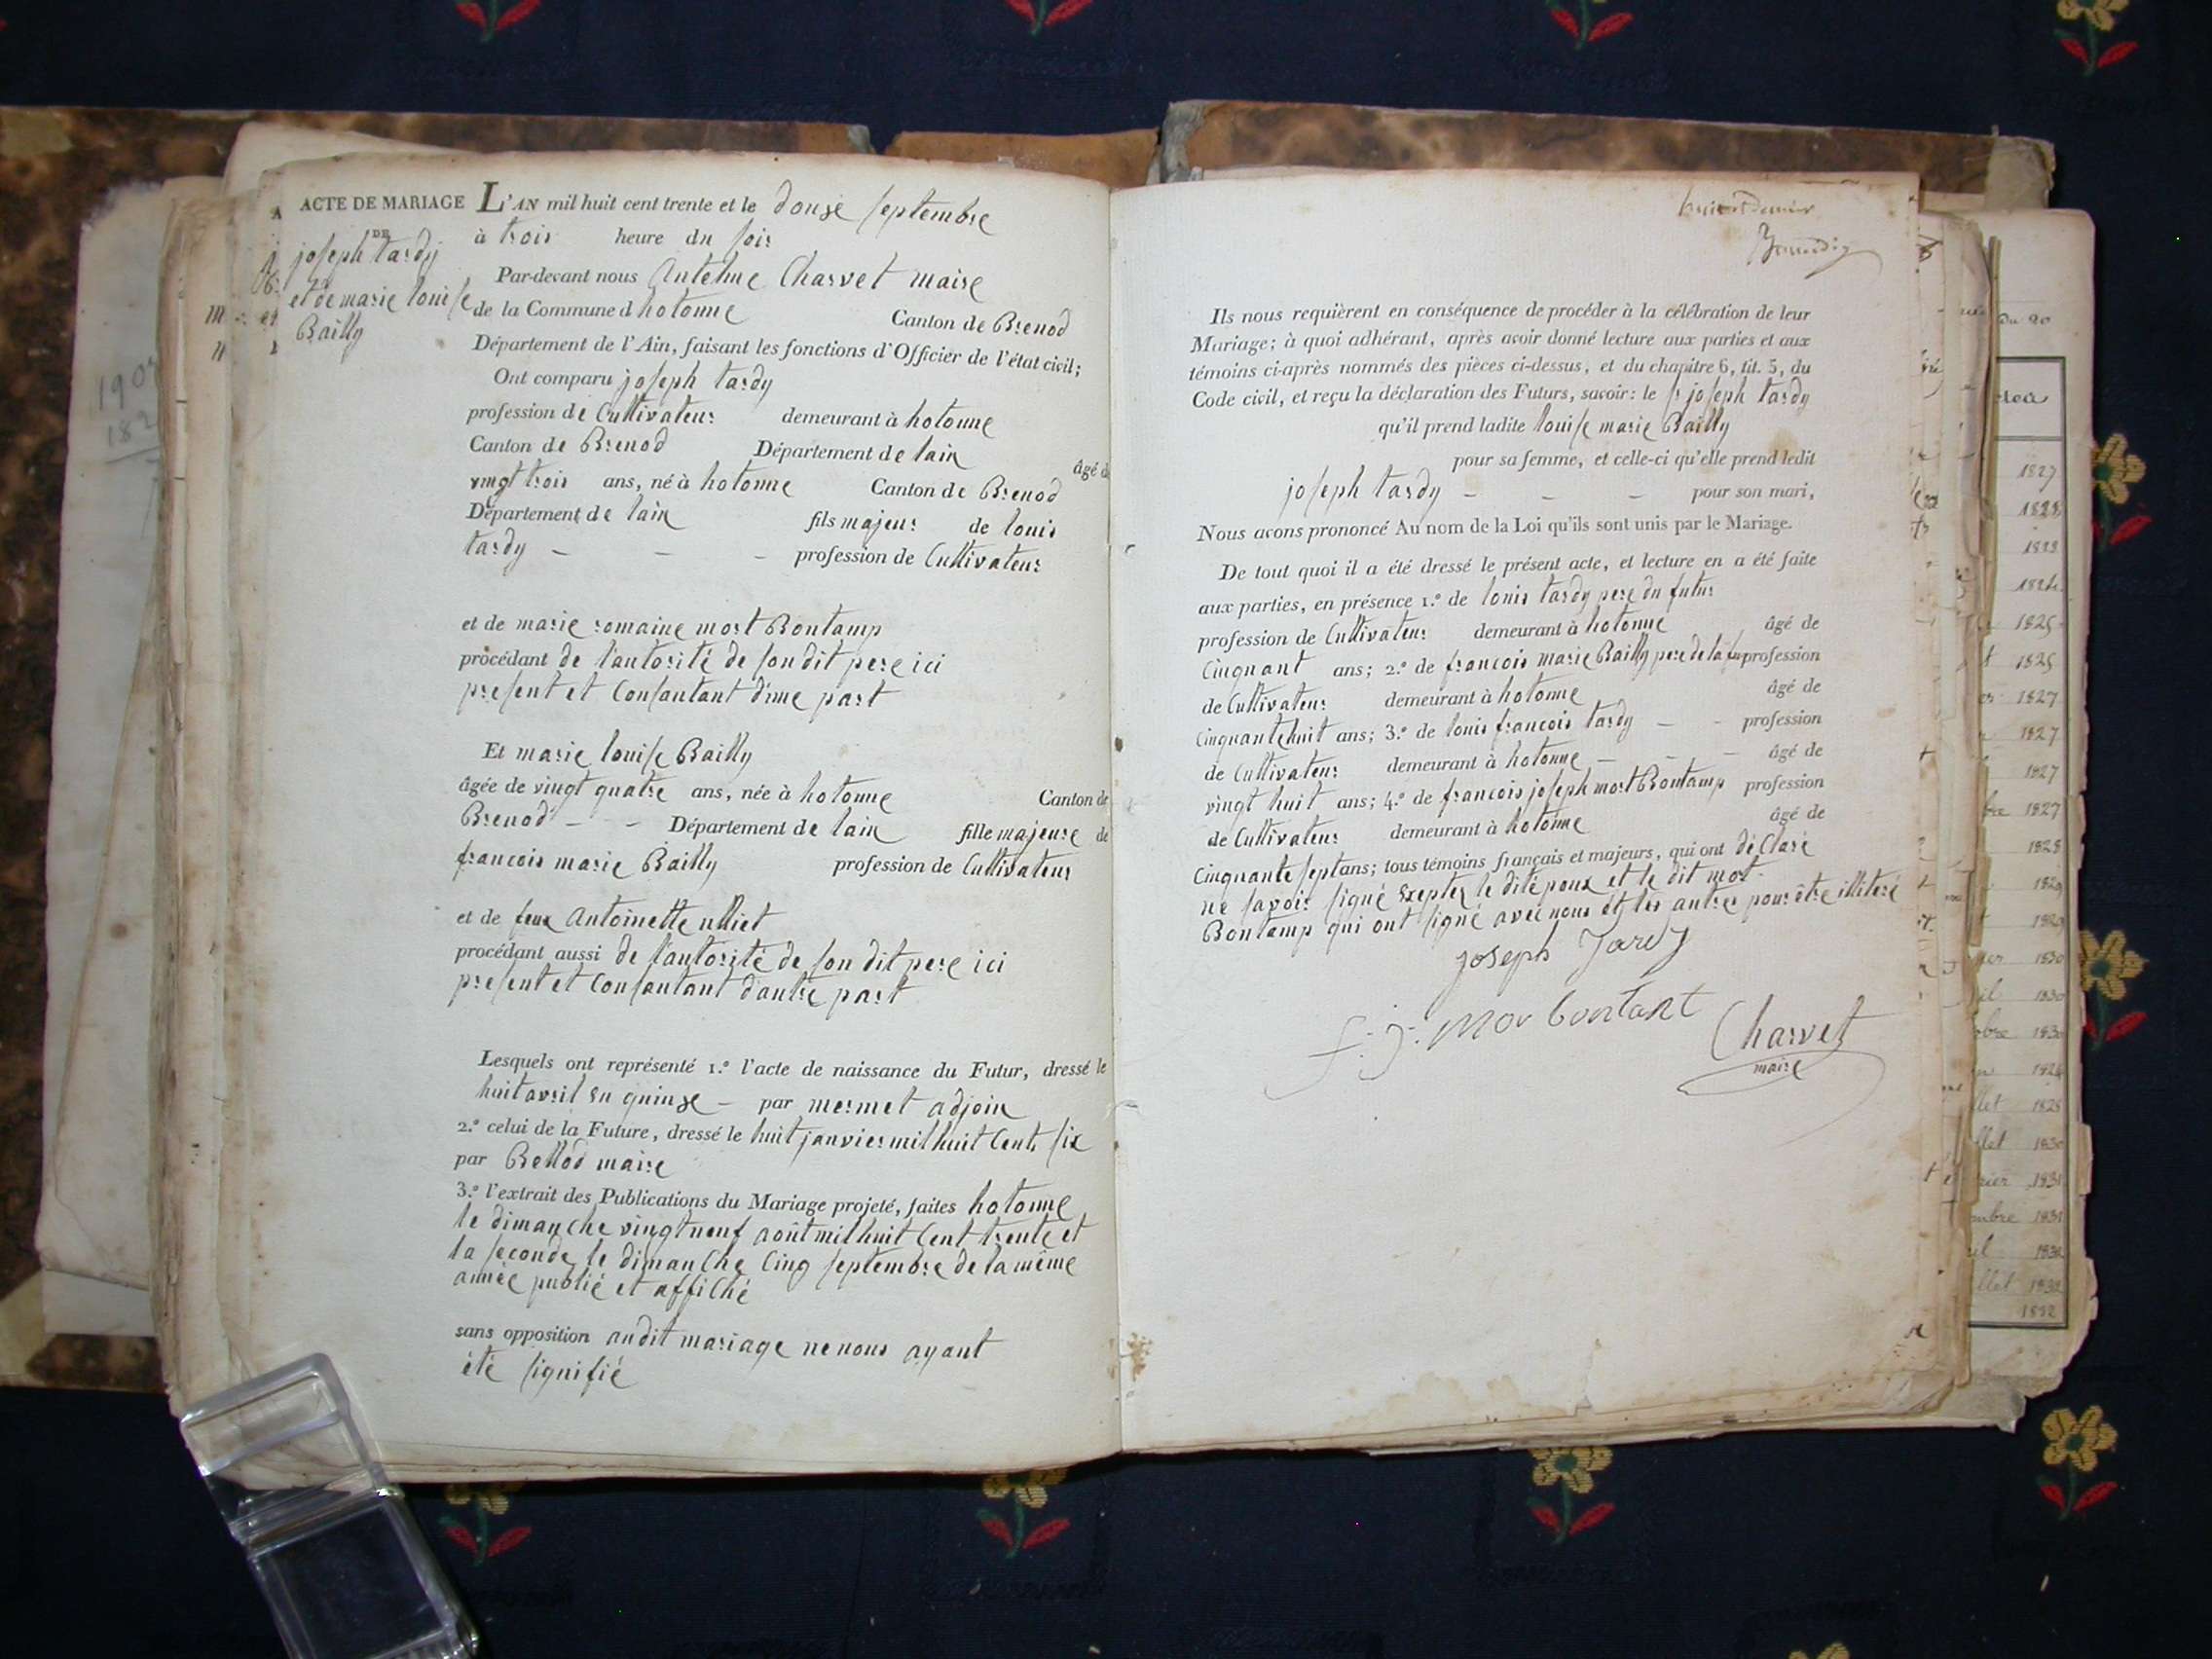 ACTE DE MARIAGE
DE
joseph tardy
et de marie louise
Bailly
L'AN mil huit cent trente et le douze septembre
à trois heure du soir
Par-devant nous Antelme Charvet maire
de la Commune d hotonne Canton de Brenod
Département de l'Ain, faisant les fonctions d'Officier de l'état civil;
Ont comparu joseph tardy
profession de Cultivateur demeurant à hotonne
Canton de Brenod Département de lain âgé de
vingt trois ans, né à hotonne Canton de Brenod
Département de lain fils majeur de louis
tardy – – – profession de Cultivateur
et de marie romaine mort Bontamp
procédant de l'autorité de son dit pere ici
present et Consantant d'une part
Et marie louise Bailly
âgée de vingt quatre ans, née à hotonne Canton de
Brenod – – Département de lain fille majeure de
francois marie Bailly profession de Cultivateur
et de feux Antoinette ulliet
procédant aussi de l'autorité de son dit pere ici
present et Consantant d'autre part
Lesquels ont représenté 1.º l'acte de naissance du Futur, dressé le
huit avril en quinze – par mermet adjoin
2.º celui de la Future, dressé le huit janvier mil huit Cent six
par Bellod maire
3.º l'extrait des Publications du Mariage projeté, faites hotonne
le dimanche vingt neuf août mil huit Cent trente et
la seconde le dimanche Cinq septembre de la même
année publié et affiché
sans opposition audit mariage ne nous ayant
été signifié
Ils nous requièrent en conséquence de procéder à la célébration de leur
Mariage; à quoi adhérant, après avoir donné lecture aux parties et aux
témoins ci-après nommés des pièces ci-dessus, et du chapitre 6, tit. 5, du
Code civil, et reçu la déclaration des Futurs, savoir: le sr joseph tardy
qu'il prend ladite louise marie Bailly
pour sa femme, et celle-ci qu'elle prend ledit
joseph tardy – – – pour son mari,
Nous avons prononcé Au nom de la Loi qu'ils sont unis par le Mariage.
De tout quoi il a été dressé le présent acte, et lecture en a été faite
aux parties, en présence 1.º de louis tardy pere du futur
profession de Cultivateur demeurant à hotonne âgé de
Cinquant ans; 2.º de francois marie Bailly pere de la profession
de Cultivateur demeurant à hotonne âgé de
Cinquante huit ans; 3.º de louis francois tardy – – profession
de Cultivateur demeurant à hotonne – – – âgé de
vingt huit ans; 4.º de francois joseph mort Bontamp profession
de Cultivateur demeurant à hotonne âgé de
Cinquante sept ans; tous témoins français et majeurs, qui ont déClaré
ne savoir signé exepter le dit époux et le dit mort
Bontamp qui ont signé avec nous et les autres pour être illitéré
joseph Tardy
f. j. Mor bontant
Charvet
maire